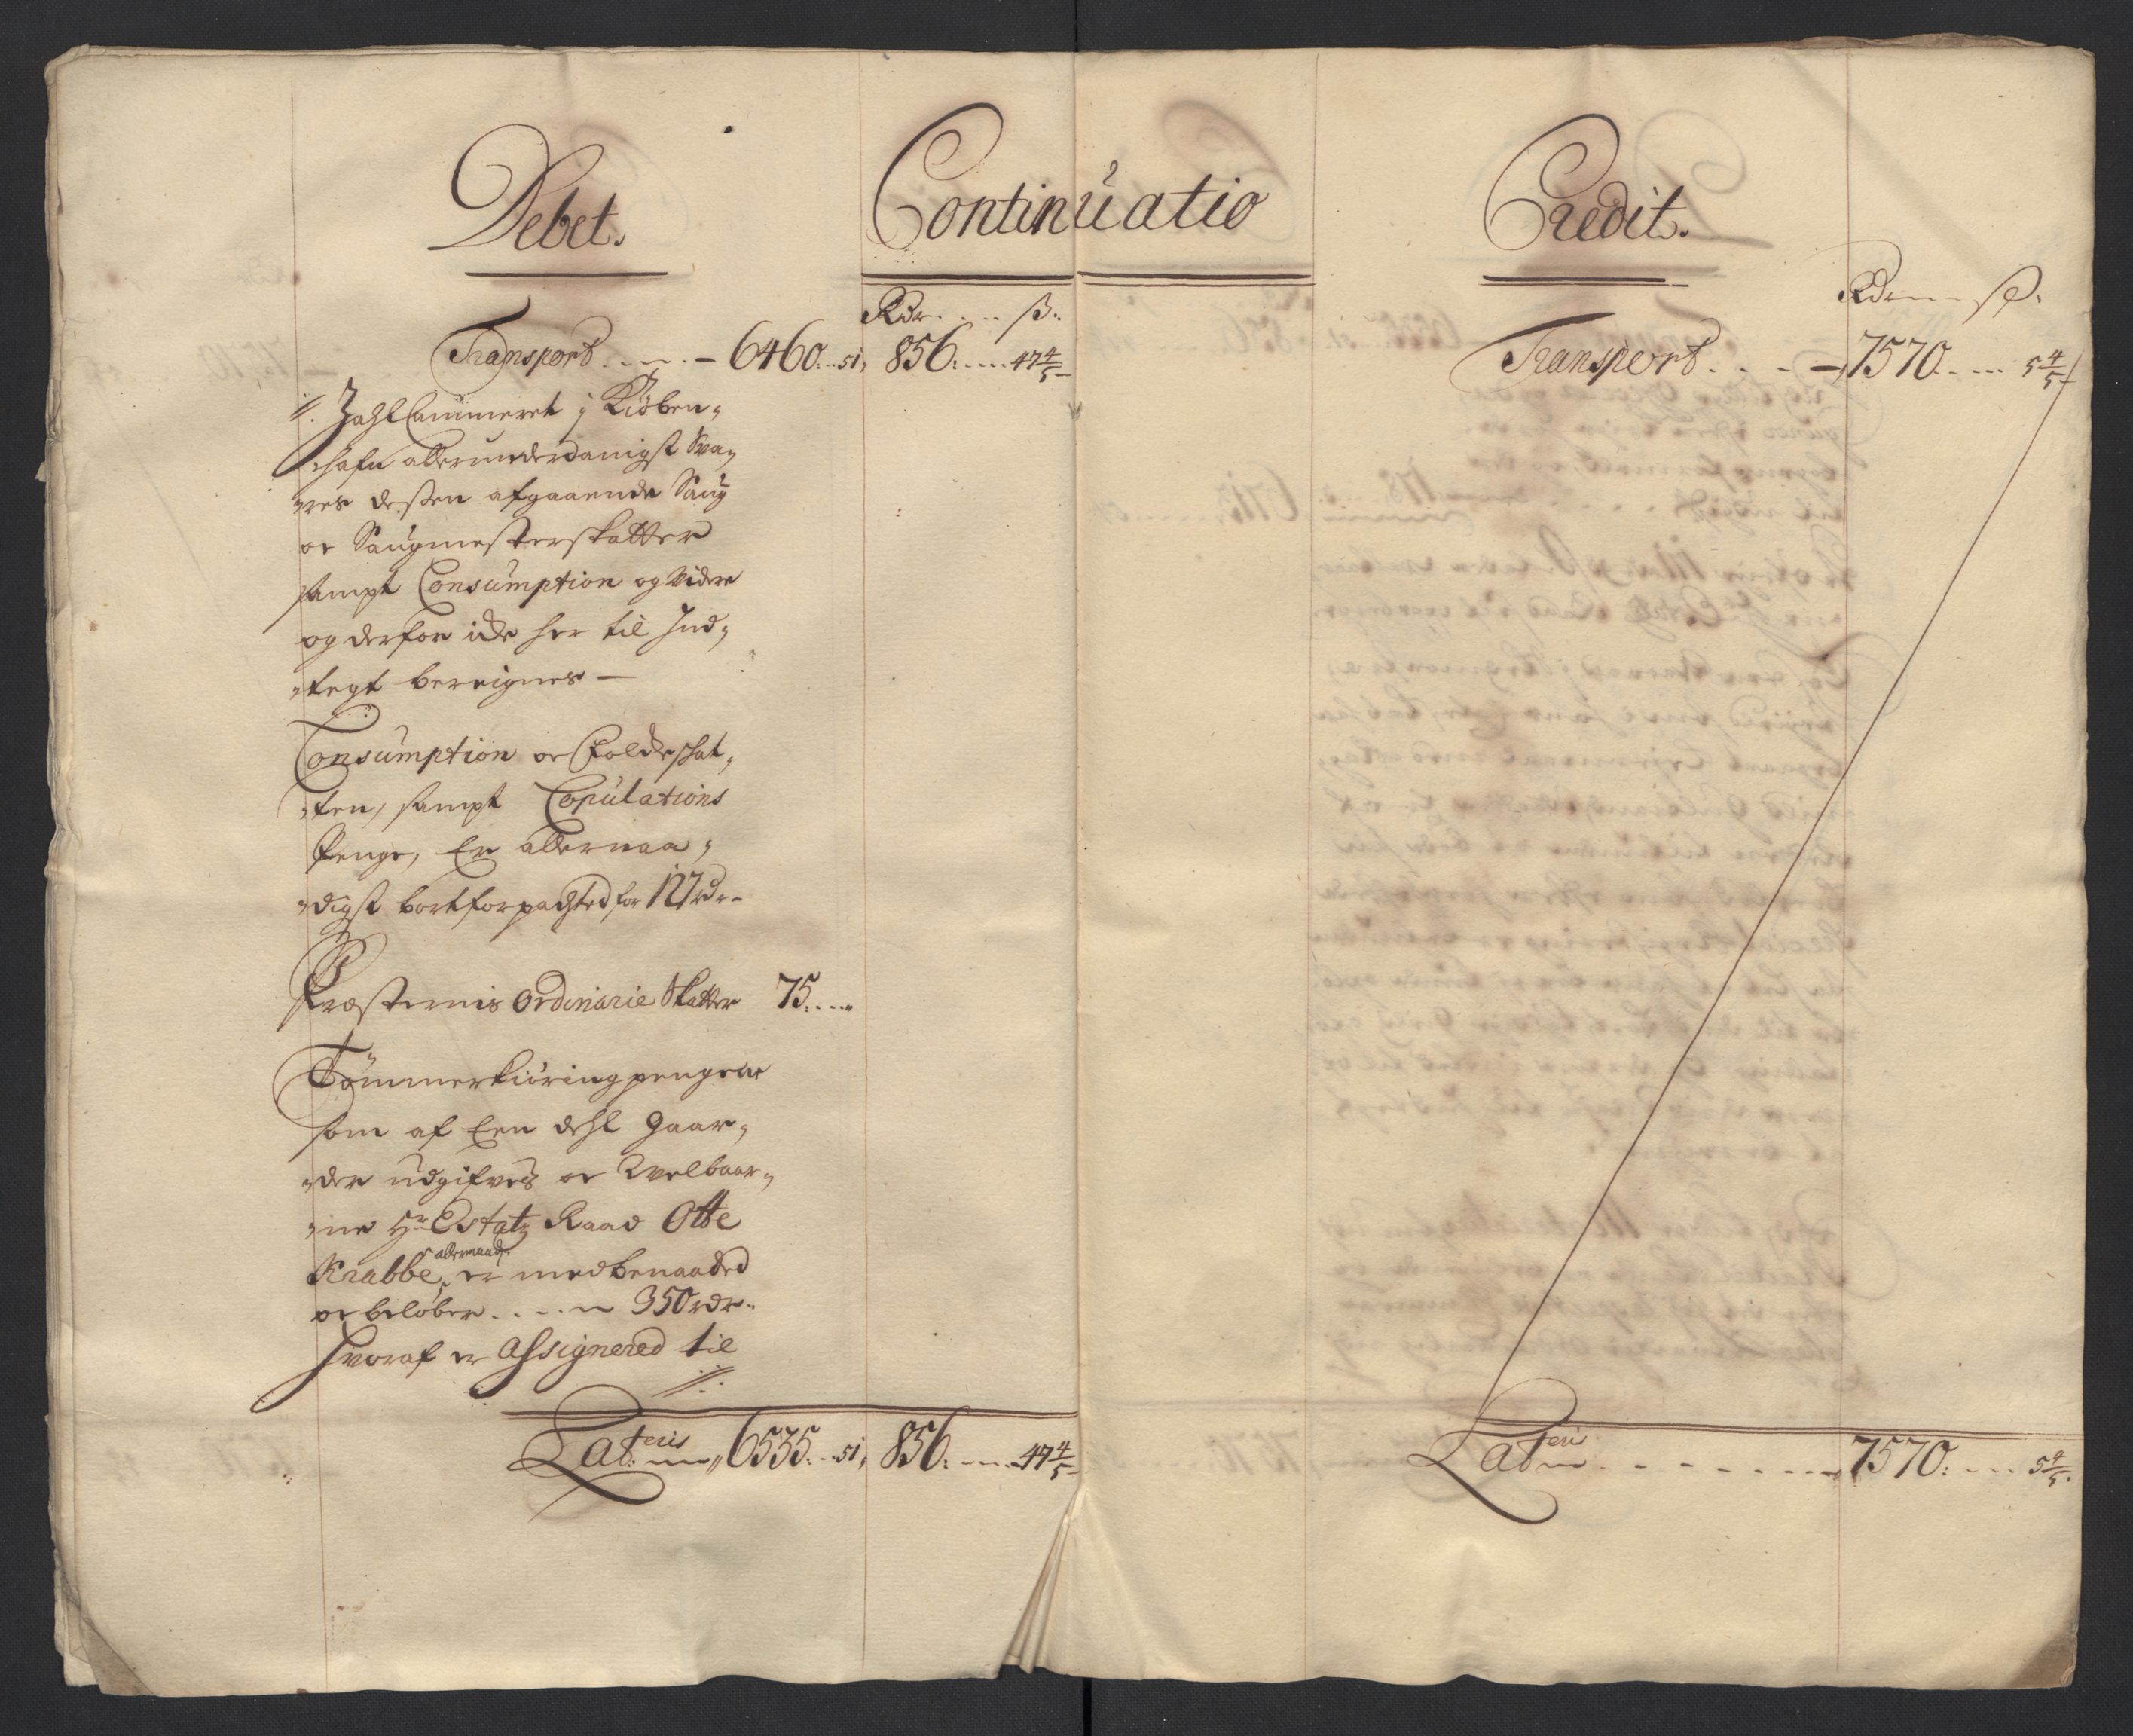 Debet.
Continuatio
Credit.
Rdr. ß.
Transport 6460. 51, 856. 47 4/5
//. Zahl Cammeret j Kiøben,
hafn allerunderdanigst Sva,
res desßen afgaaende Saug
oc Saugmesterskatter
sampt Consumption og videre
og derfor icke her til Ind,
tegt bereignes —
Consumption oc Folckeskat,
ten, sampt Copulations
Penge, Er allernaa,
digst bortforpachted for 127 rdr.
Præsternis Ordinarie Skatter 75.
Tømmerkiøring pengene
som af Een dehl gaar,
der udgifves oc Welbaar,
ne Hr Estatz Raad Otte
Krabbe, allernaadr. er medbenaaded
oc beløber 350 rdr.
hvoraf er Assignered til
//.
Lateris 6535. 51, 856. 47 4/5
Rdr. ß.
Transport. 7570. 5 4/5
Lateris 7570. 5 4/5.